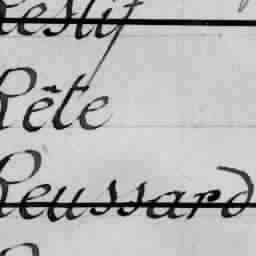 Restif
Rête
Reussard